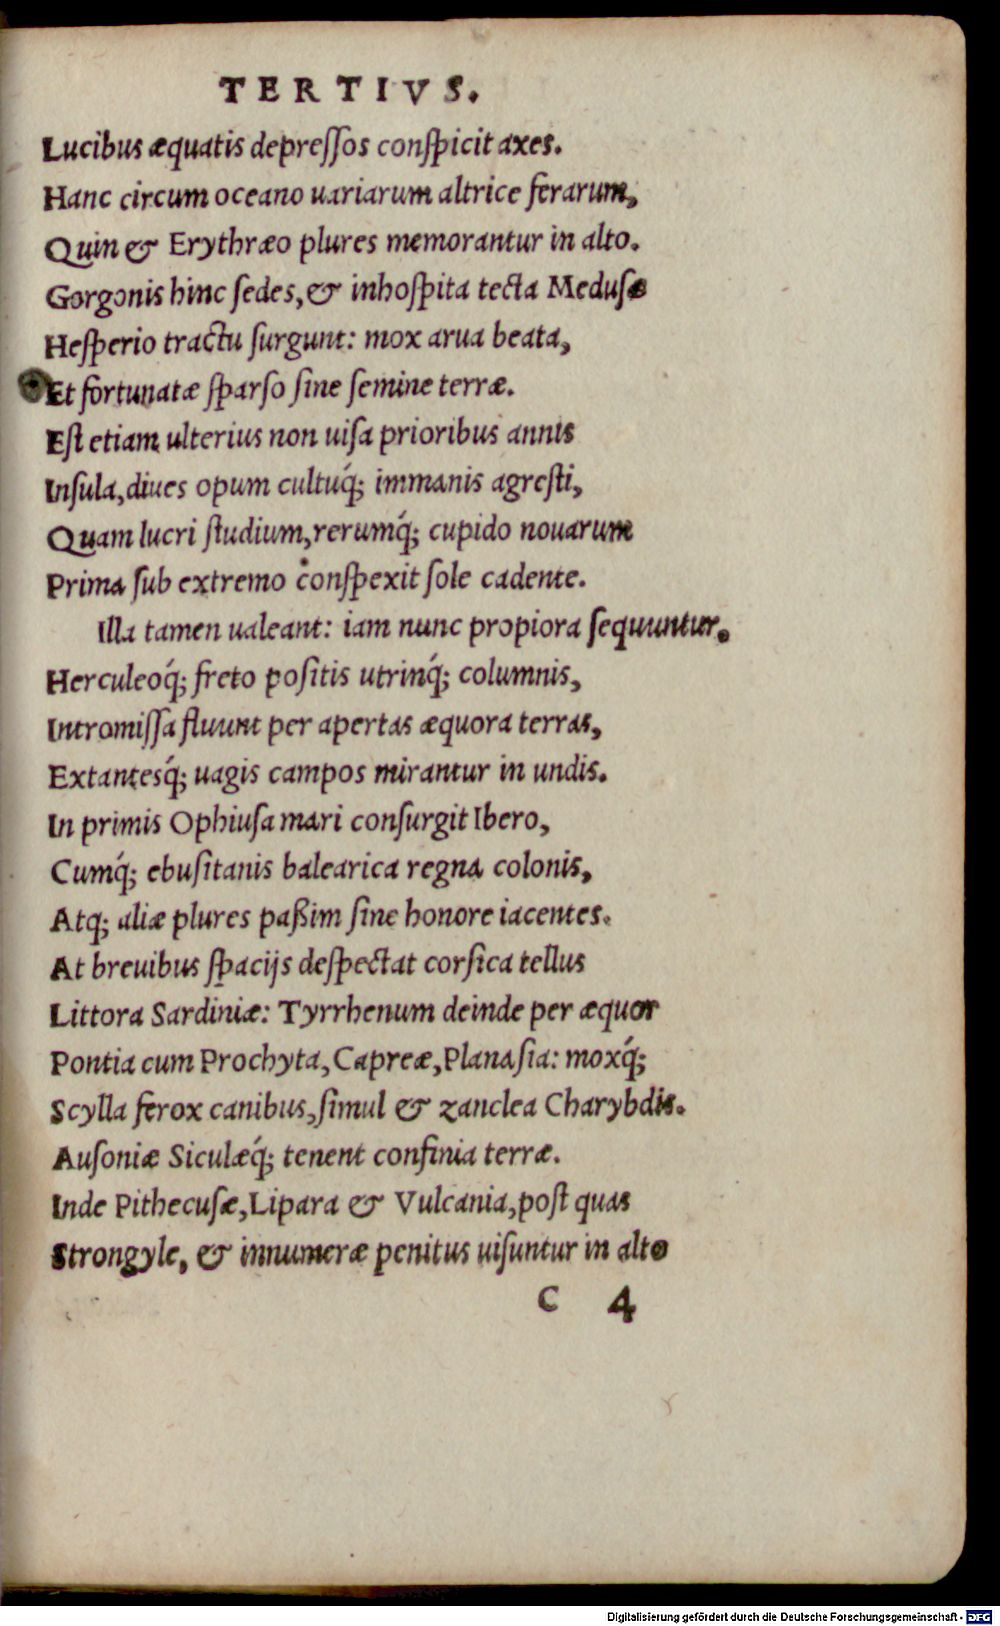 TERTIVS.
Lucibus æquatis depreſſos conſpicit axes.
Hanc circum oceano uariarum altrice ferarum,
Quin & Erythræo plures memorantur in alto.
Gorgonis hinc ſedes, & inhoſpita tecta Meduſæ
Heſperio tractu ſurgunt: mox arua beata,
Et fortunatæ ſparſo ſine ſemine terræ.
Eſt etiam ulterius non uiſa prioribus annis
Inſula, diues opum cultuq́; immanis agreſti,
Quam lucri ſtudium, rerumq́; cupido nouarum
Prima ſub extremo conſpexit ſole cadente.
Illa tamen ualeant: iam nunc propiora ſequuntur.
Herculeoq́; freto poſitis utrinq́; columnis,
Intromiſſa fluunt per apertas æquora terras,
Extantesq́; uagis campos mirantur in undis.
In primis Ophiuſa mari conſurgit Ibero,
Cumq́; ebuſitanis balearica regna colonis,
Atq; aliæ plures paßim ſine honore iacentes.
At breuibus ſpacijs deſpectat corſica tellus
Littora Sardiniæ: Tyrrhenum deinde per æquor
Pontia cum Prochyta, Capreæ, Planaſia: moxq́;
Scylla ferox canibus, ſimul & zanclea Charybdis.
Auſoniæ Siculæq́; tenent confinia terræ.
Inde Pithecuſæ, Lipara & Vulcania, poſt quas
Strongyle, & innumeræ penitus uiſuntur in alto
C 4
Digitalisierung gefördert durch die Deutsche Forschungsgemeinschaft - DFG